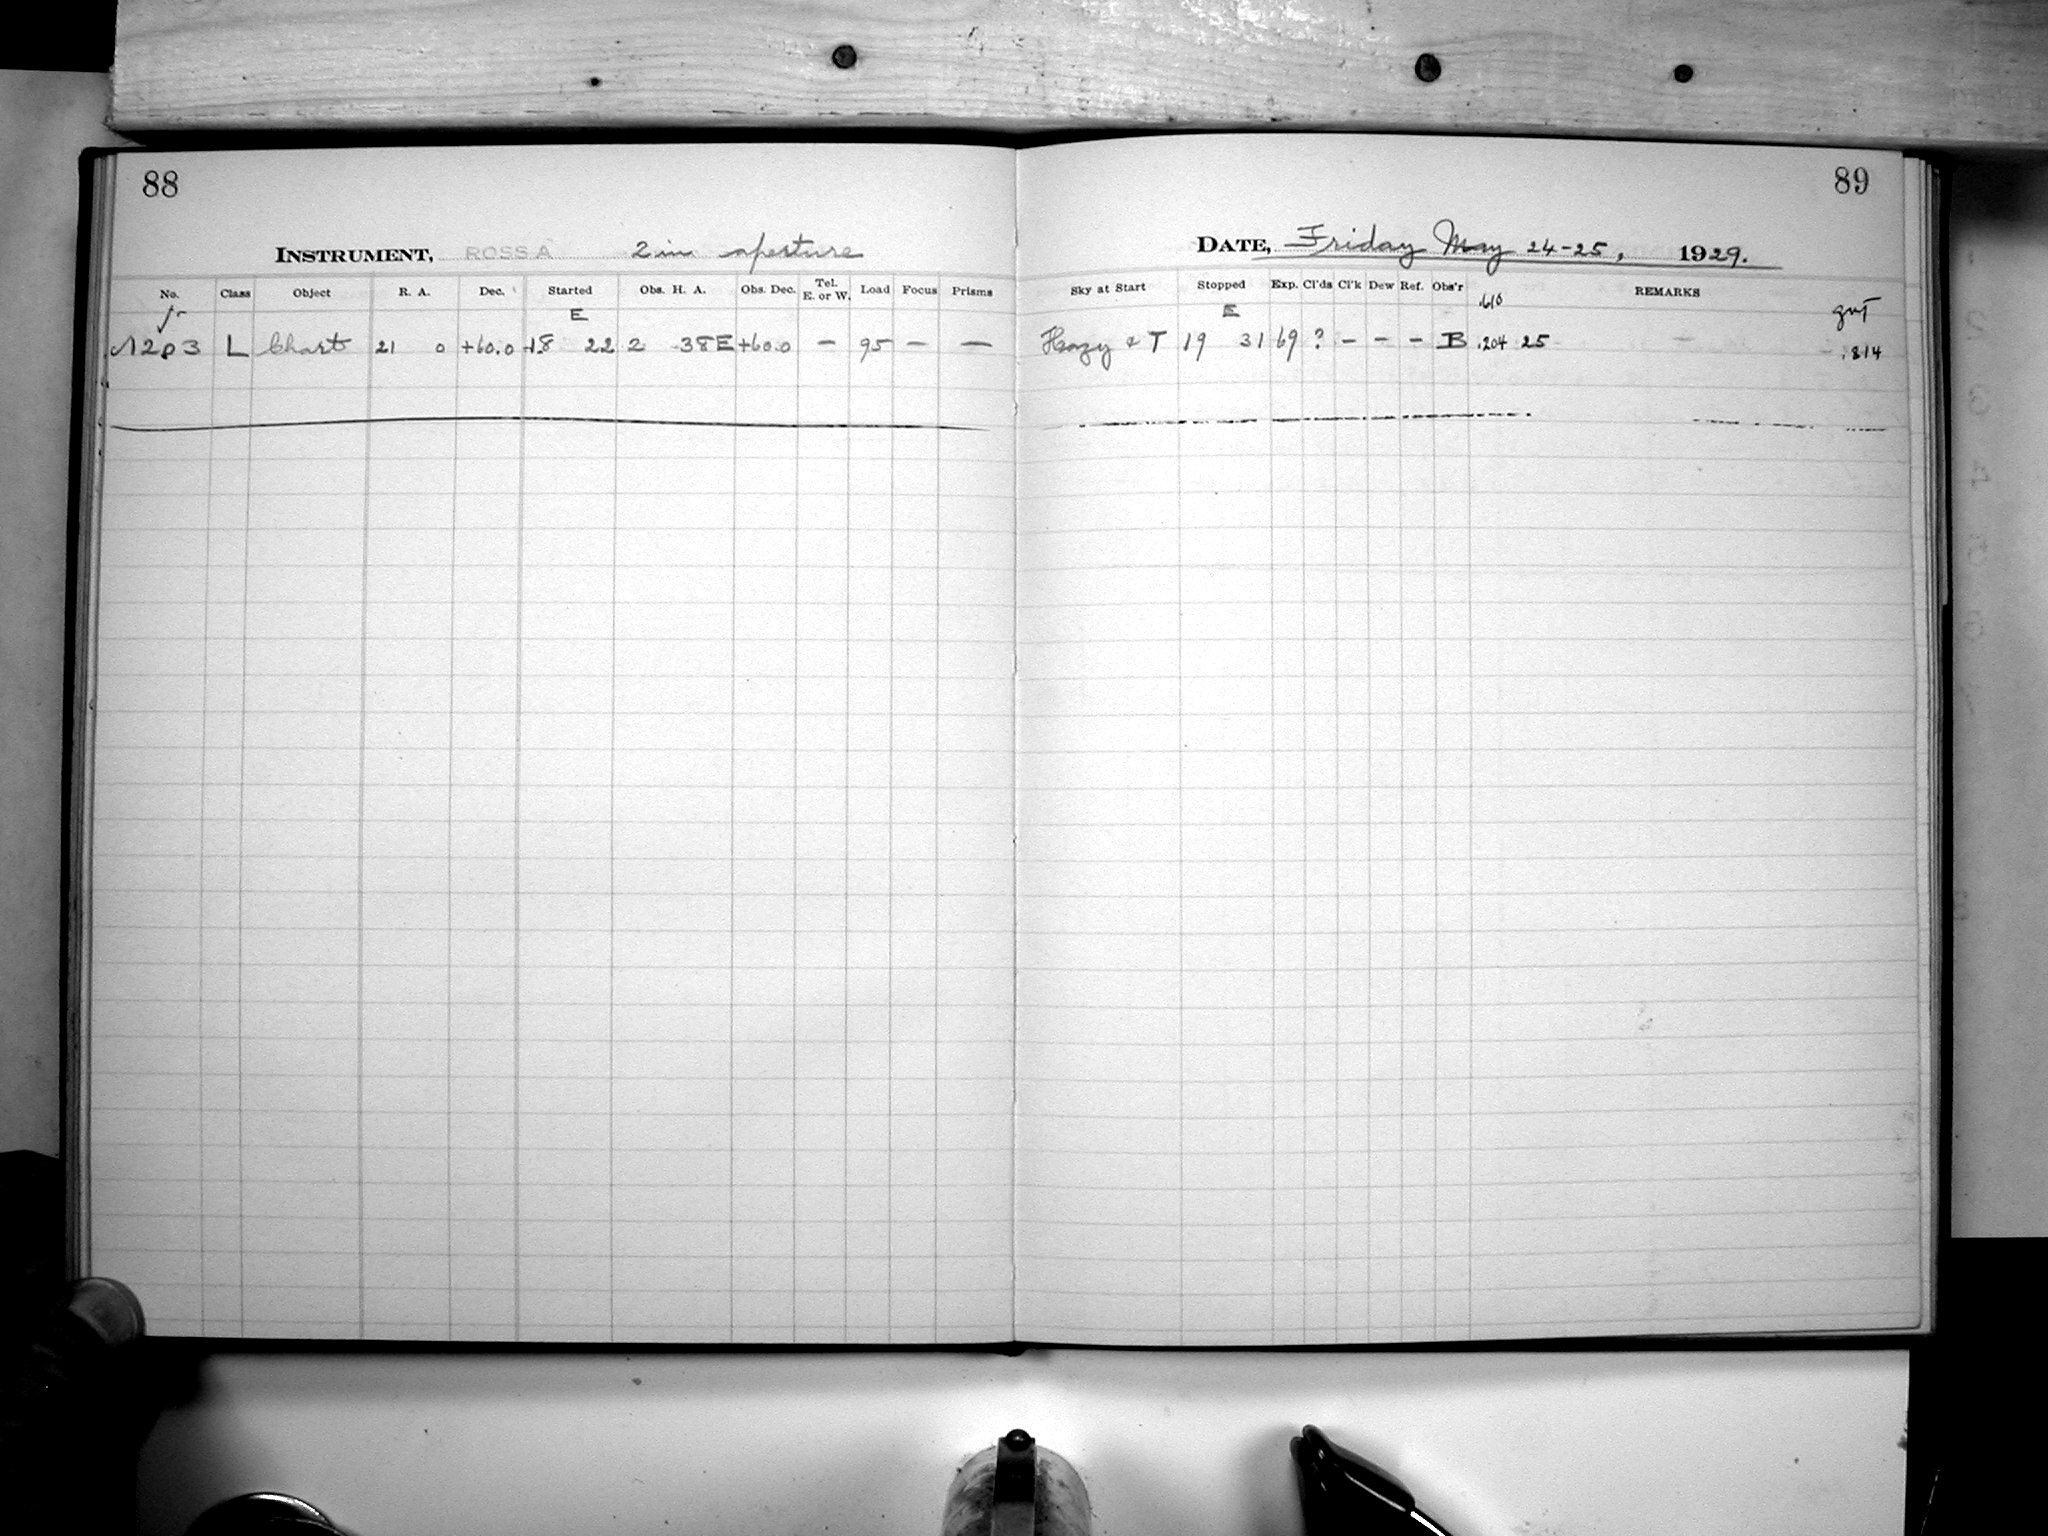 88
INSTRUMENT, ROSS A 2 in aperture
No. Class Object R. A. Dec. Started Obs. H. A. Obs. Dec. Tel. E. or W. Load Focus Prisms
E
L Chart 21 0 +60.0 18 22 2 38E +60.0 — 95 — —
89
DATE, Friday May 24-25, 1929.
Sky at Start Stopped Exp. Cl'ds Cl'k Dew Ref. Obs'r REMARKS
E .610 GMT
Hazy & T 19 31 69 ? - - - B .204 25 .814